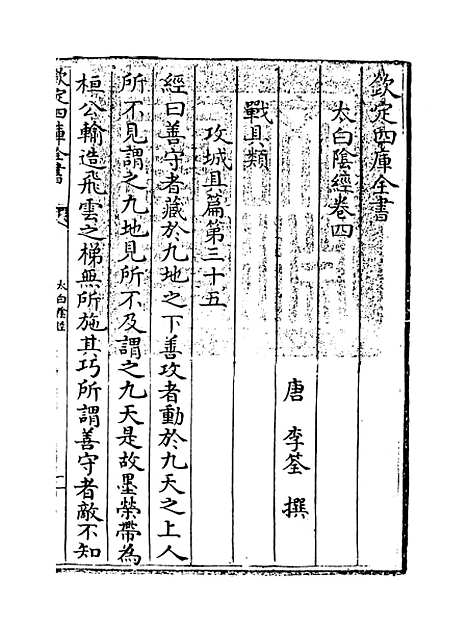 欽定四庫全書
太白陰經卷四
唐 李筌 撰
戰具類
攻城具篇第三十五
經曰善守者藏於九地之下善攻者動於九天之上人
所不見謂之九地見所不及謂之九天是故墨縈帶為
桓公輸造飛雲之梯無所施其巧所謂善守者敵不知
欽定四庫全書
太白陰經